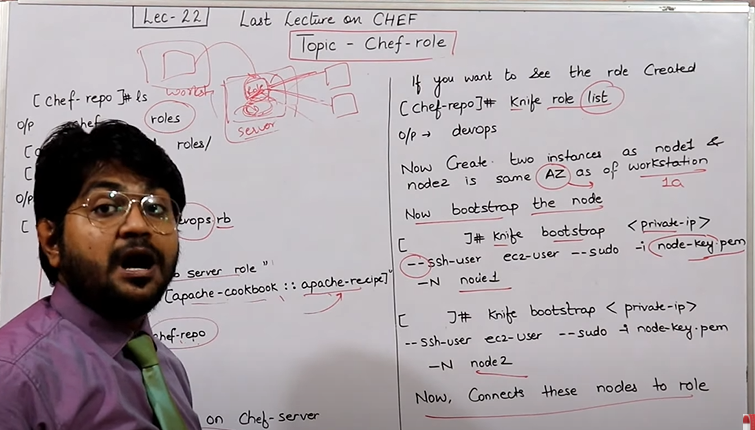 Lec-22
Last Lecture on CHEF
Topic - Chef-role
workst
role
server
[chef-repo]# ls
o/p → chef-
roles
roles/
[
[
o/p
[
devops.rb
server role "
[apache-cookbook :: apache-recipe]"
chef-repo
on Chef-server
If you want to See the role Created
[chef-repo]# Knife role list
o/p → devops
Now Create two instances as node1 &
node2 is same AZ as of workstation
1a
Now bootstrap the node
[ ]# Knife bootstrap <private-ip>
--ssh-user ec2-user --sudo -i node-key.pem
-N node1
[ ]# Knife bootstrap <private-ip>
--ssh-user ec2-user --sudo -i node-key.pem
-N node2
Now, Connects these nodes to role